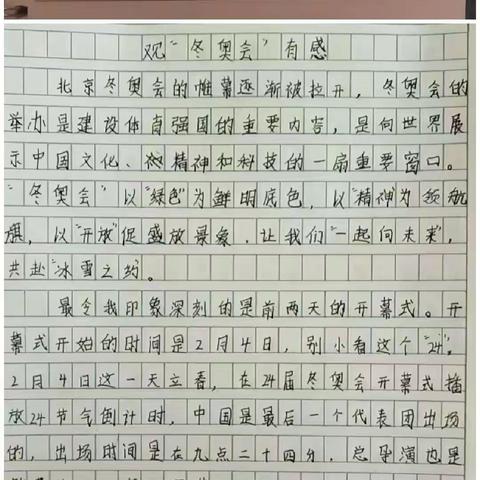 观“冬奥会”有感
北京冬奥会的帷幕逐渐被拉开，冬奥会的
举办是建设体育强国的重要内容，是向世界展
示中国文化、精神和科技的一扇重要窗口。
“冬奥会”以“绿色”为鲜明底色，以“精神”为领航
旗，以“开放”促盛放景象，让我们“一起向未来”，
共赴“冰雪之约”。
最令我印象深刻的是前两天的开幕式。开
幕式开始的时间是2月4日，别小看这个“24”，
2月4日这一天立春，在24届冬奥会开幕式播
放24节气倒计时，中国是最后一个代表团出场
的，出场时间是在九点二十四分，总导演也是